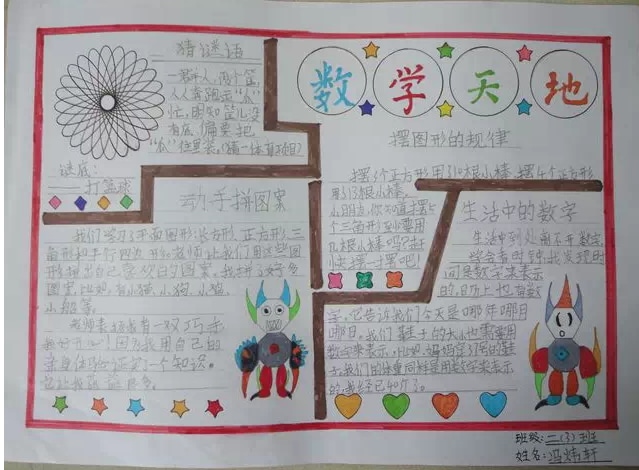 猜谜语
一群人,两个筐,
人人奔跑运"瓜"
忙,明知筐儿没
有底,偏要把
"瓜"往里装。(猜一体育项目)
谜底:
——打篮球
数学天地
摆图形的规律
摆3个正方形用了10根小棒,摆4个正方形
用了13根小棒。
小朋友,你知道摆5
个三角形至少要用
几根小棒吗?赶
快摆一摆吧!
动手拼图案
我们学习了平面图形长方形、正方形、三
角形和平行四边形,老师让我们用这些图
形拼出自己喜欢的图案。我拼了好多
图案,比如:有小猫、小狗、小鱼、
小船等。
老师表扬我有一双巧手,
我太开心!因为我用自己的
亲自体验证实了一个知识。
生活中的数字
生活中到处离不开数字,
学会看时钟,我发现时
间是数字来表示
的,日历上也有数
字,它告诉我们今天是哪年哪月
哪日。我们鞋子的大小也需要用
数字来表示,比如:妈妈穿37号的鞋
子,我们的体重同样要用数字来表示
的,我已经40斤了。
班级:二(3)班
姓名:冯炜轩